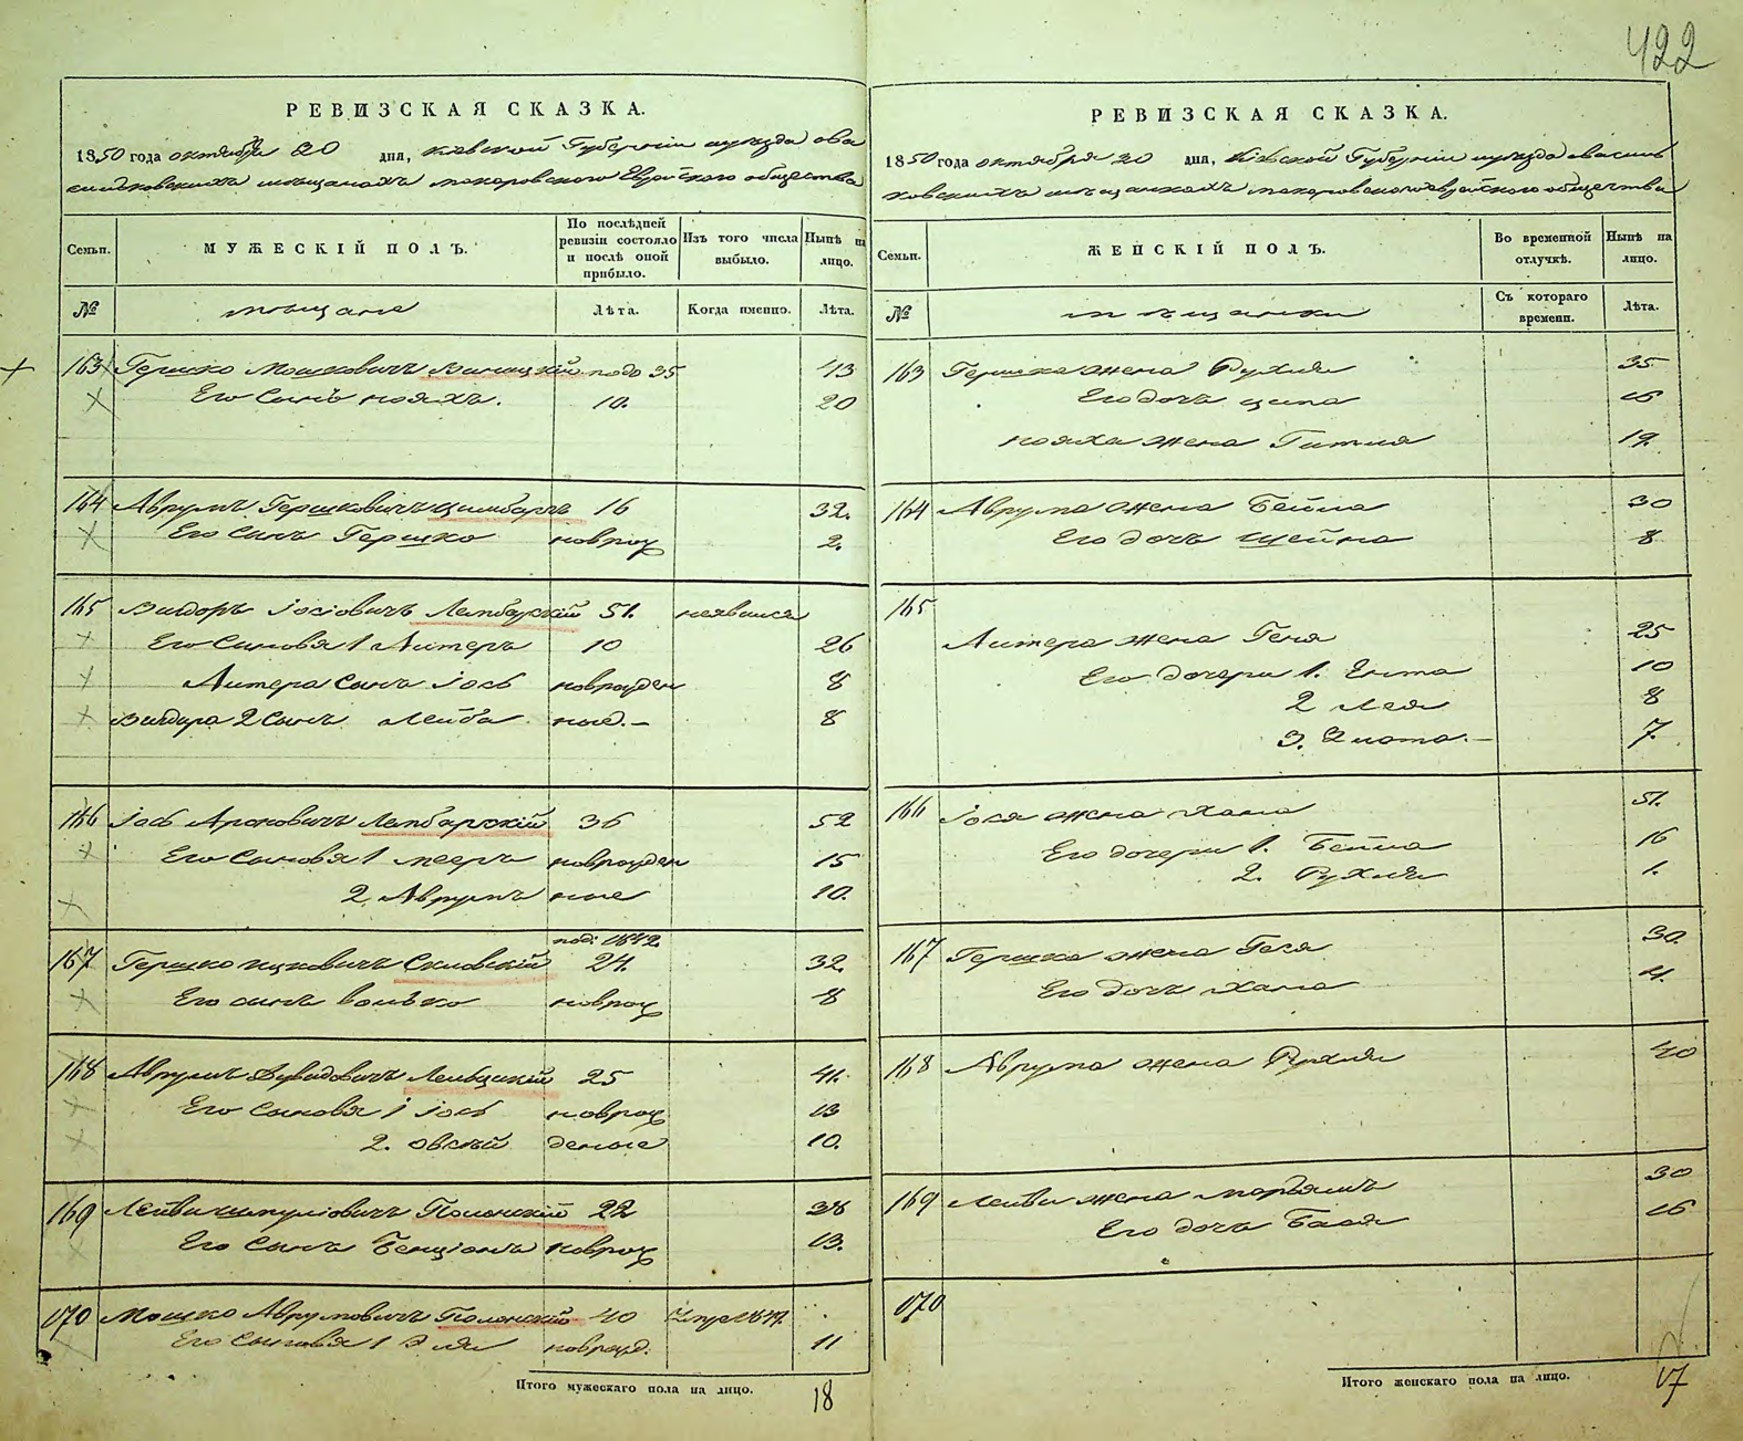 422
РЕВИЗСКАЯ СКАЗКА.
1850 года октября 20 дня, киевской Губернии уезда ова
сильковскихъ мещанахъ макаровского Еврейского общества
Семьи.
МУЖЕСКІЙ ПОЛЪ.
По послѣдней ревизіи состояло и послѣ оной прибыло.
Изъ того числа выбыло.
Нынѣ на лицо.
№
мещане
Лѣта.
Когда именно.
Лѣта.
163 Гершко Мошковичъ 35 43
Его Синъ 10. 20
164 Аврумъ Гершковичъ Цимбаръ 16 32.
Его Синъ Гершко новрож 2.
165 Вигдоръ Іосіовичъ Лембарскій 51. неявился
Его Синовя 1 Литеръ 10 26
Литера Синъ Іось новрожден 8
Вигдора 2 Синъ Лейба ные.— 8
166 Іось Ароновичъ Лембарскій 36 52
Его Синовя 1 Мееръ новрожден 15
2. Аврумъ ные 10.
под: 1842.
167 Гершко Ицковичъ Скловскій 24. 32.
Его синъ Волько новрож 8
168 Аврумъ Дувидовичъ 25 41.
Его Синовя 1 Іось новрож 13
2. Овсѣй деные 10.
169 Лейви Шмуліовичъ Полонскій 22 38
Его Синъ Бенціонъ новрож 13.
170 Мошко Аврумовичъ Полонскій 40
Его Синовя 1 Эля новрожд. 11
Итого мужескаго пола на лицо.
18
РЕВИЗСКАЯ СКАЗКА.
1850 года октября 20 дня, Кіевской Губерніи уезда василь
ковскихъ мещанкахъ макаровского еврейского общества
Семьи.
ЖЕНСКІЙ ПОЛЪ.
Во временной отлучкѣ.
Нынѣ на лицо.
№
мещанки
Съ котораго времени.
Лѣта.
163 Гершка жена Рухля 35
Его дочъ Ципа 16
жена Гитля 19.
164 Аврума жена Бейла 30
Его дочъ Шейна 8
165
Литера жена Геня 25
Его дочери 1. Ента 10
2 Лея 8
3. Злота.— 7.
166 Іося жена Хана 51.
Его дочери 1. Бейла 16
2. Рухля 1.
167 Гершка жена Гася 30.
Его дочъ Хана 4.
168 Аврума жена Рухля 40
169 Лейви жена Марьямъ 30
Его дочъ Бася 16
170
Итого женскаго пола на лицо.
17